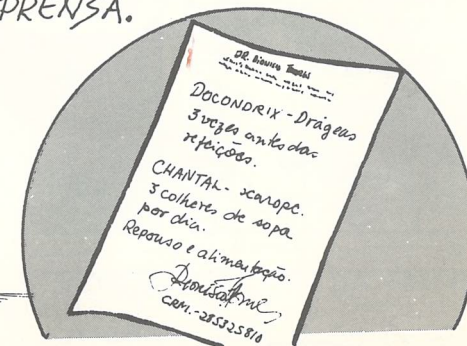 PRENSA.
DR.
DOCONDRIX - Drágeas
3 vezes antes das
refeições.
CHANTAL - xarope.
3 colheres de sopa
por dia.
Repouso e alimentação.
CRM.-285325810